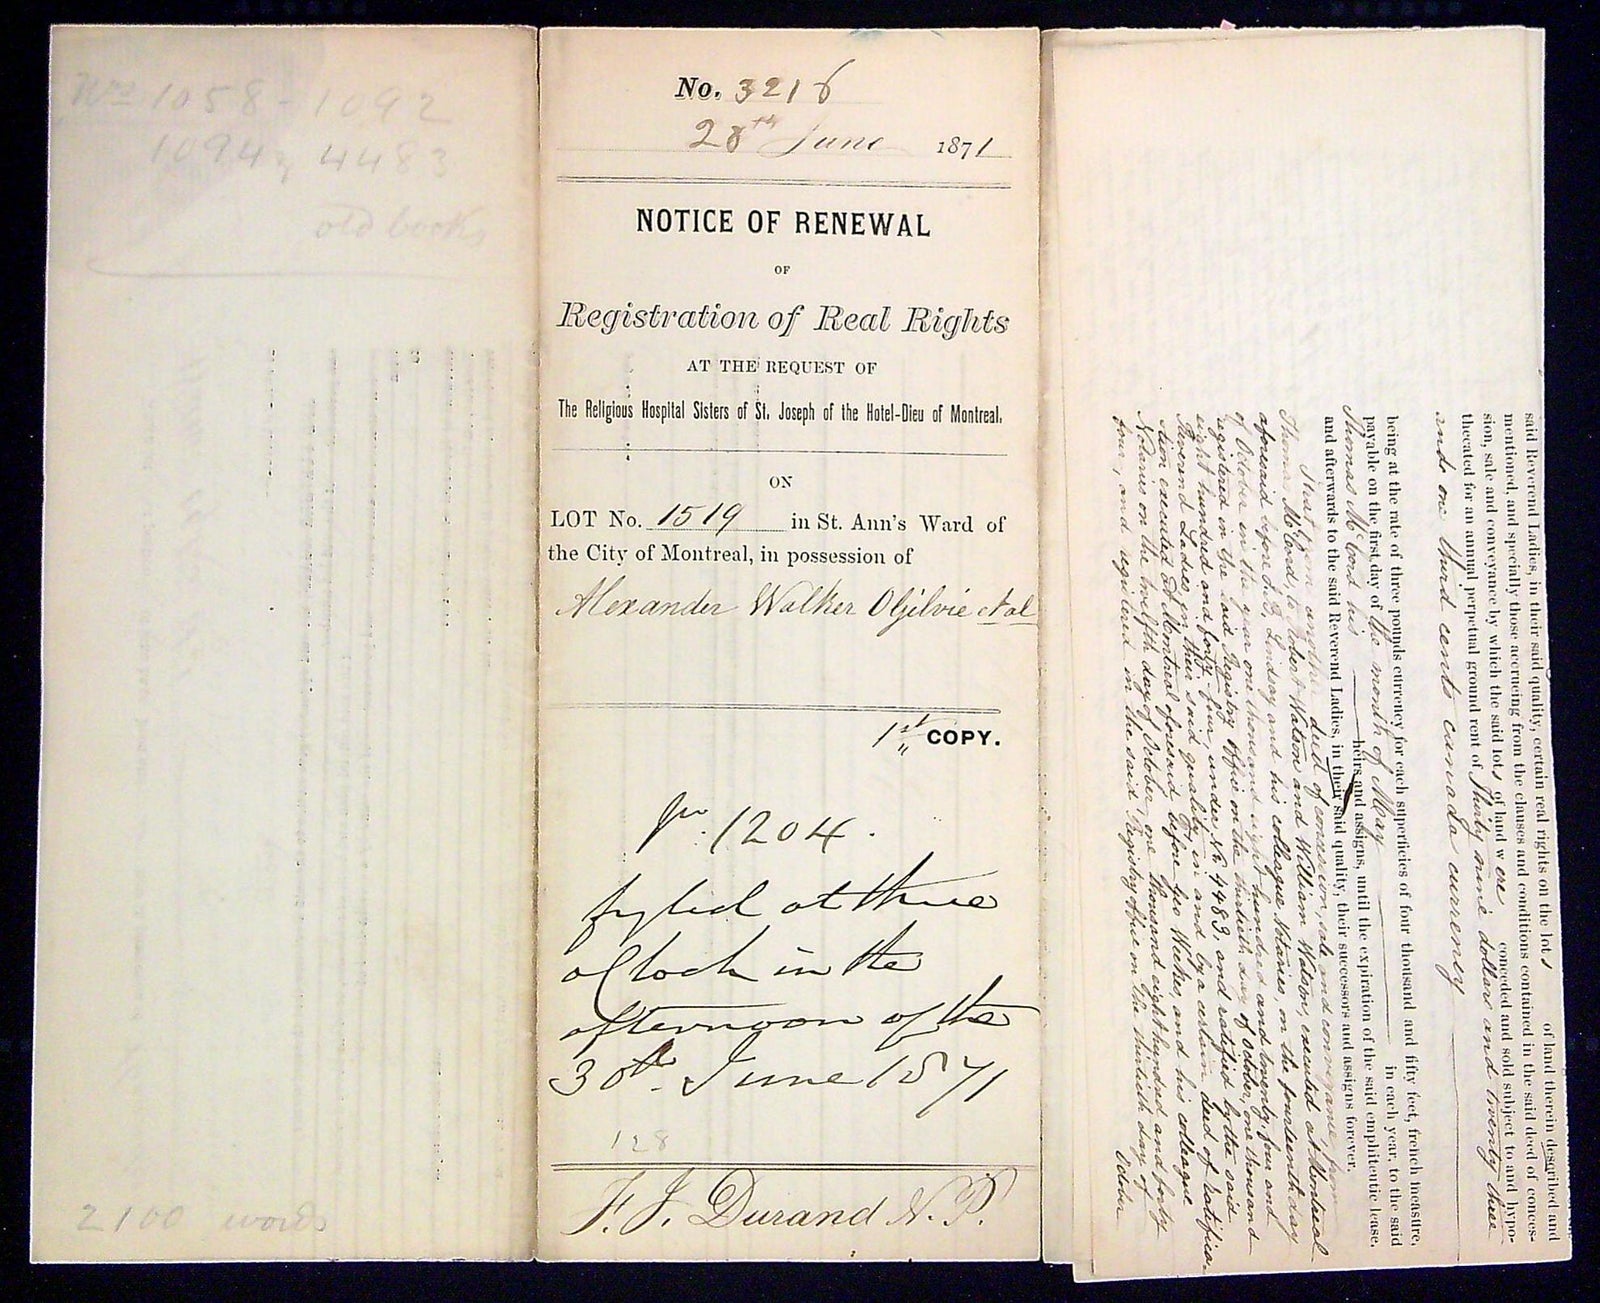 Nos 1058 - 1092
1094 & 4483
old books
2100 words
No. 3216
28th June 1871
NOTICE OF RENEWAL
OF
Registration of Real Rights
AT THE REQUEST OF
The Religious Hospital Sisters of St. Joseph of the Hotel-Dieu of Montreal.
ON
LOT No. 1519 in St. Ann's Ward of
the City of Montreal, in possession of
Alexander Walker Ogilvie et al
1st COPY.
1204.
fyled at three
o'Clock in the
afternoon of the
30th June 1871
128
F. J. Durand N. P.
said Reverend Ladies, in their said quality, certain real rights on the lots of land therein described and
mentioned, and specially those accrueing from the clauses and conditions contained in the said deed of conces-
sion, sale and conveyance by which the said lots of land were conceded and sold subject to and hypo-
thecated for an annual perpetual ground rent of Thirty nine dollars and twenty three
and one third cents canada currency
being at the rate of three pounds currency for each superficies of four thousand and fifty feet, french measure,
payable on the first day of the month of May in each year, to the said
Thomas McCord his heirs and assigns, until the expiration of the said emphiteutic lease,
and afterwards to the said Reverend Ladies, in their said quality, their successors and assigns forever.
That upon another deed of concession, sale and conveyance, from
Thomas McCord, to Robert Watson and William Watson, executed at Montreal
aforesaid before L. B. Lindsay and his colleague Notaries, on the fourteenth day
of October in the year one thousand eight hundred and twenty four and
registered in the said Registry office on the thirtieth day of October, one thousand
eight hundred and forty four, under No. 4483, and ratified by the said
Reverend Ladies, in their said quality, in and by a certain deed of ratifica-
tion executed at Montreal aforesaid before Geo Weekes, and his colleague
Notaries on the twelfth day of October one thousand eight hundred and forty
four, and registered in the said Registry office on the thirtieth day of October